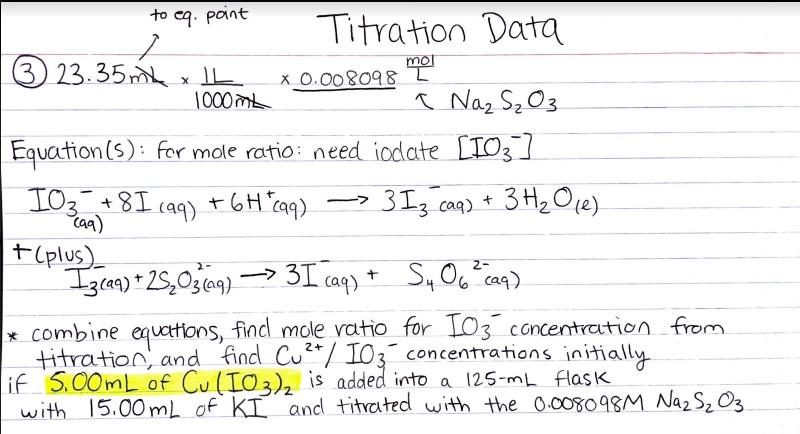 to eq. point
Titration Data
③ 23.35mL × 1L/1000mL × 0.008098 mol/L
↑ Na₂S₂O₃
Equation(s): for mole ratio: need iodate [IO₃⁻]
IO₃⁻(aq) + 8I(aq) + 6H⁺(aq) → 3I₃⁻(aq) + 3H₂O(l)
+(plus)
I₃⁻(aq) + 2S₂O₃²⁻(aq) → 3I⁻(aq) + S₄O₆²⁻(aq)
* combine equations, find mole ratio for IO₃⁻ concentration from
titration, and find Cu²⁺/IO₃⁻ concentrations initially
if 5.00mL of Cu(IO₃)₂ is added into a 125-mL flask
with 15.00mL of KI and titrated with the 0.008098M Na₂S₂O₃